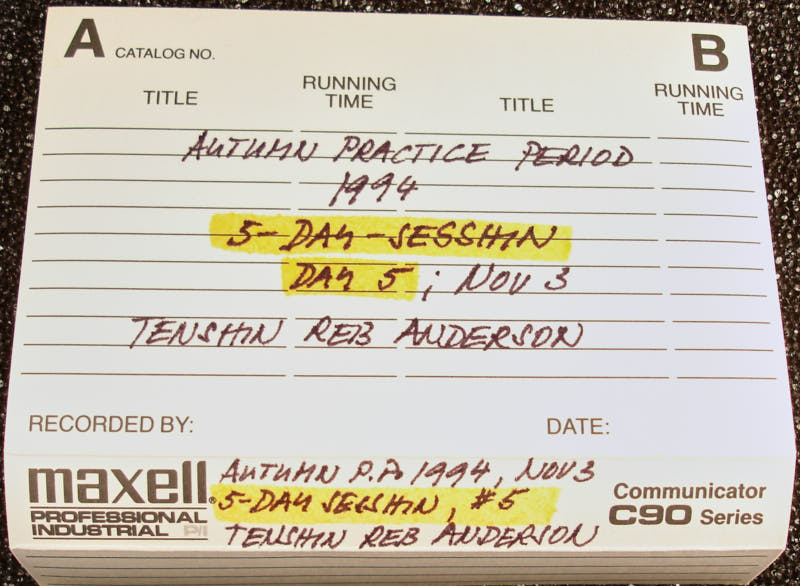 A CATALOG NO. B
TITLE RUNNING TIME TITLE RUNNING TIME
AUTUMN PRACTICE PERIOD
1994
5-DAY-SESSHIN
DAY 5; NOV 3
TENSHIN REB ANDERSON
RECORDED BY: DATE:
maxell®
PROFESSIONAL
INDUSTRIAL P/I
AUTUMN P.P. 1994, NOV 3
5-DAY SESSHIN, #5
TENSHIN REB ANDERSON
Communicator
C90 Series